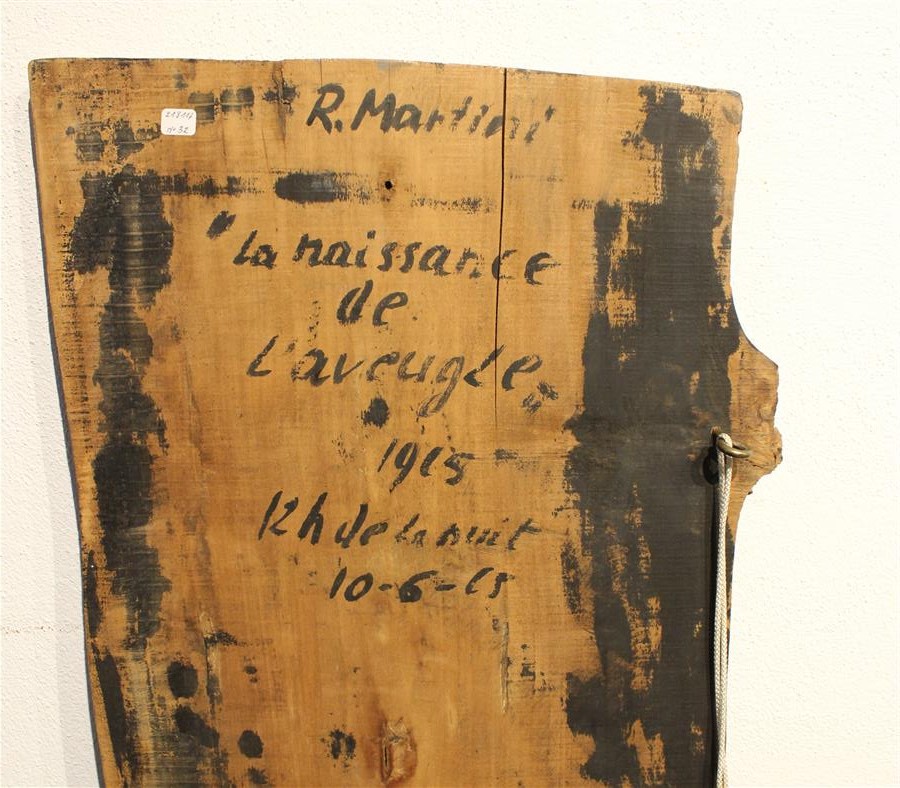 213117
N° 32
R. Martini
"la naissance
de
l'aveugle"
1965
12h de la nuit
10-6-65